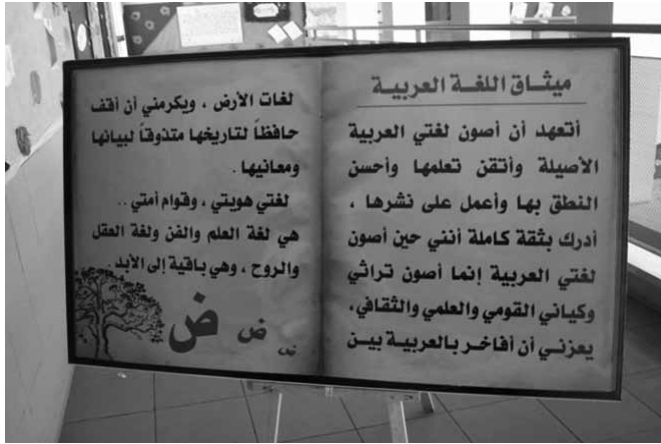 ميثـاق اللغـة العربيـة
أتعهد أن أصون لغتي العربية
الأصيلة وأتقن تعلمها وأحسن
النطق بها وأعمل على نشرها ،
أدرك بثقة كاملة أنني حين أصون
لغتي العربية إنما أصون تراثي
وكياني القومي والعلمي والثقافي،
يعزنـي أن أفاخـر بـالعربيـة بيـن
لغات الأرض ، ويكرمني أن أقف
حافظاً لتاريخها متذوقاً لبيانها
ومعانيها .
لغتي هويتي ، وقوام أمتي ..
هي لغة العلم والفن ولغة العقل
والروح ، وهي باقية إلى الأبد .
ض ض ض